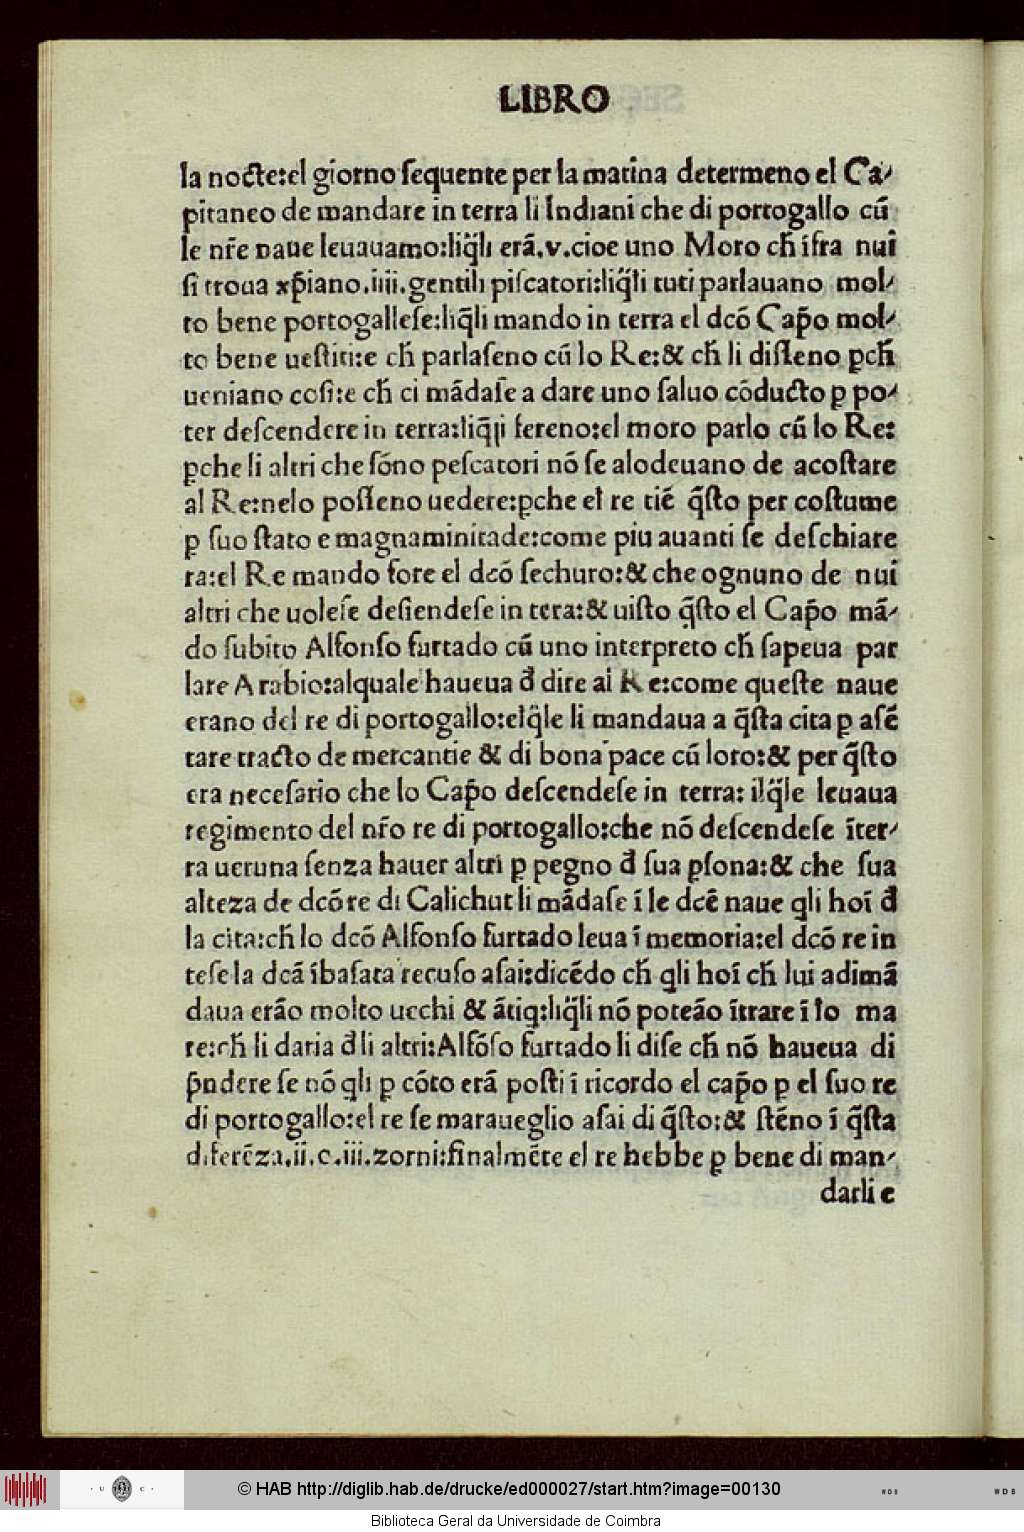 LIBRO
la nocte:el giorno ſequente per la matina determeno el Ca-
pitaneo de mandare in terra li Indiani che di portogallo cū
le nr̄e naue leuauamo:liq̄li erā.v.cioe uno Moro ch̄ īfra nui
ſi troua xp̄iano.iiii.gentili piſcatori:liq̄li tuti parlauano mol-
to bene portogalleſe:liq̄li mando in terra el dcō Cap̄o mol-
to bene ueſtiti:e ch̄ parlaſeno cū lo Re:& ch̄ li diſſeno ꝑch̄
ueniano coſi:e ch̄ ci mādaſe a dare uno ſaluo cōducto ꝑ po-
ter deſcendere in terra:liq̄li fereno:el moro parlo cū lo Re:
ꝑche li altri che ſōno peſcatori nō ſe alodeuano de acoſtare
al Re:nelo poſſeno uedere:ꝑche el re tiē q̄ſto per coſtume
ꝑ ſuo ſtato e magnaminitade:come piu auanti ſe deſchiare
ra:el Re mando fore el dcō ſechuro:& che ognuno de nui
altri che uoleſe deſiendeſe in tera:& uiſto q̄ſto el Cap̄o mā-
do ſubito Alfonſo furtado cū uno interpreto ch̄ ſapeua par
lare Arabio:alquale haueua đ dire al Re:come queſte naue
erano del re di portogallo:elq̄le li mandaua a q̄ſta cita ꝑ aſē
tare tracto de mercantie & di bona pace cū loro:& per q̄ſto
era neceſario che lo Cap̄o deſcendeſe in terra: ilq̄le leuaua
regimento del nr̄o re di portogallo:che nō deſcendeſe īter-
ra ueruna ſenza hauer altri ꝑ pegno đ ſua ꝑſona:& che ſua
alteza de dcō re di Calichut li mādaſe ī le dcē naue qli hoī đ
la cita:ch̄ lo dcō Alfonſo furtado leua ī memoria:el dcō re in
teſe la dcā ībaſata recuſo aſai:dicēdo ch̄ qli hoī ch̄ lui adimā
daua erāo molto uechi & ātiq:liq̄li nō poteāo ītrare ī lo ma
re:ch̄ li daria đ li altri:Alfōſo furtado li diſe ch̄ nō haueua di
p̄ndere ſe nō qli ꝑ cōto erā poſti ī ricordo el cap̄o ꝑ el ſuo re
di portogallo:el re ſe maraueglio aſai di q̄ſto:& ſtēno ī q̄ſta
diferēza.ii.c.iii.zorni:finalmēte el re hebbe ꝑ bene di man-
darli e
© HAB http://diglib.hab.de/drucke/ed000027/start.htm?image=00130
Biblioteca Geral da Universidade de Coimbra